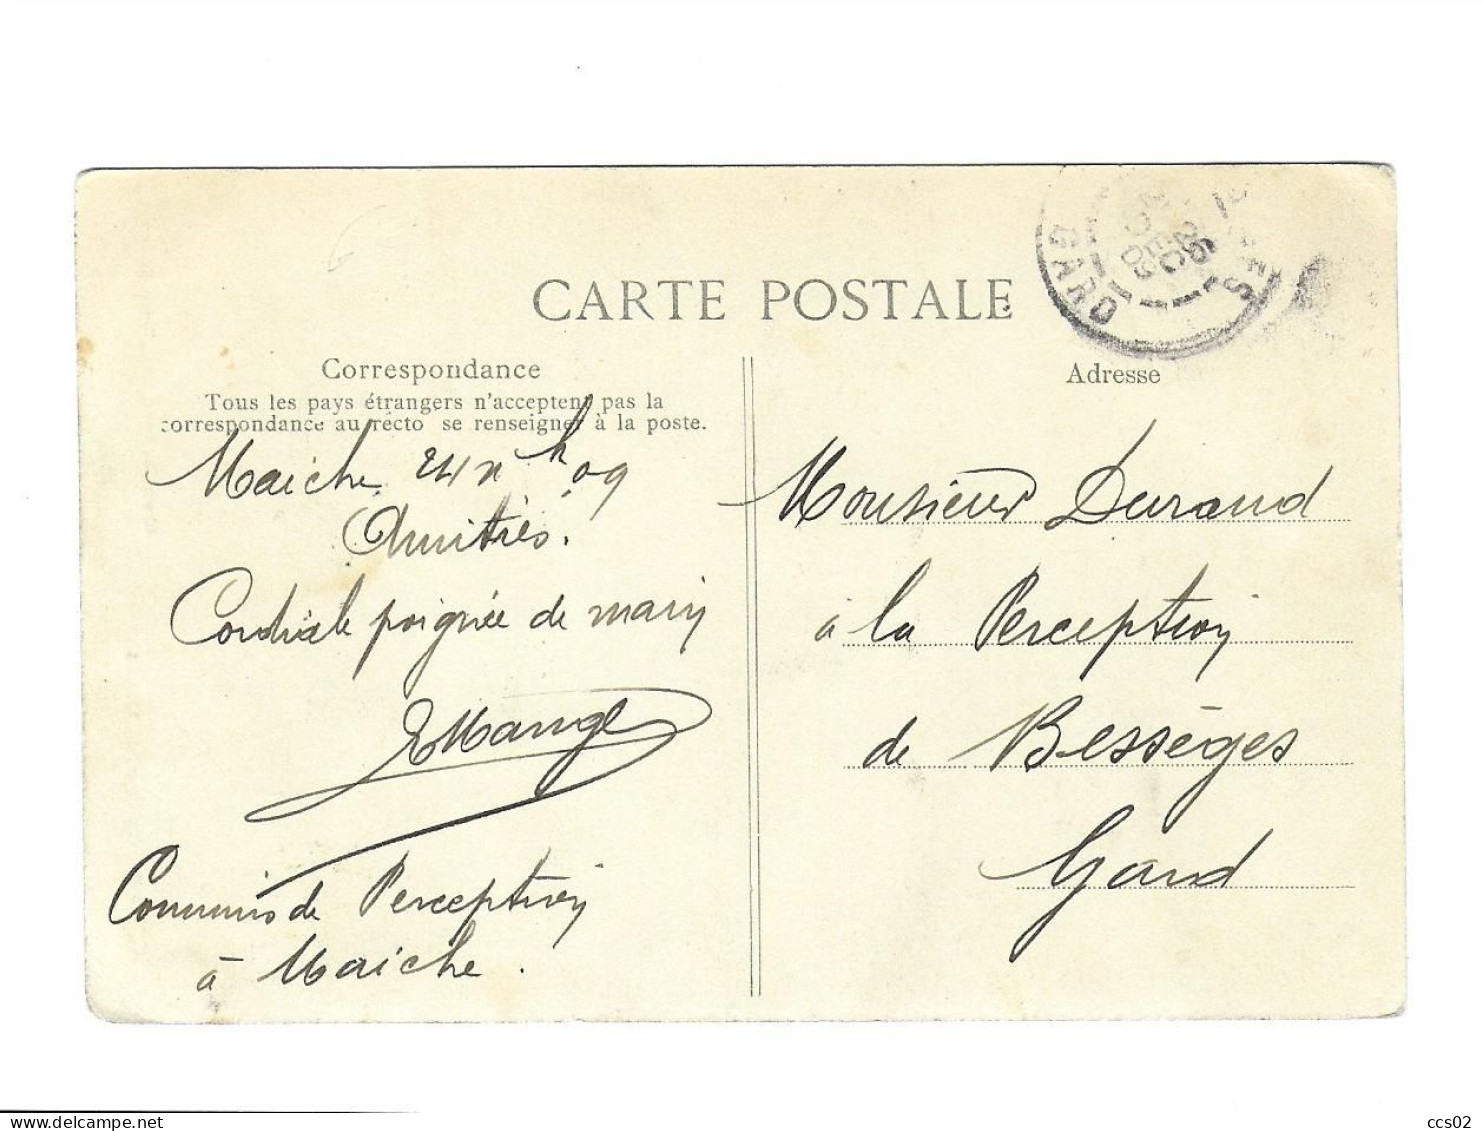 CARTE POSTALE
Correspondance
Tous les pays étrangers n'acceptent pas la
correspondance au recto se renseigner à la poste.
Maiche 24 X h 09
Amitiés.
Cordiale poignée de main
EMauge
Commis de Perception
à Maiche.
GARD
26
DEC
09
ES
Adresse
Monsieur Durand
à la Perception
de Bessèges
Gard
delcampe.net
ccs02